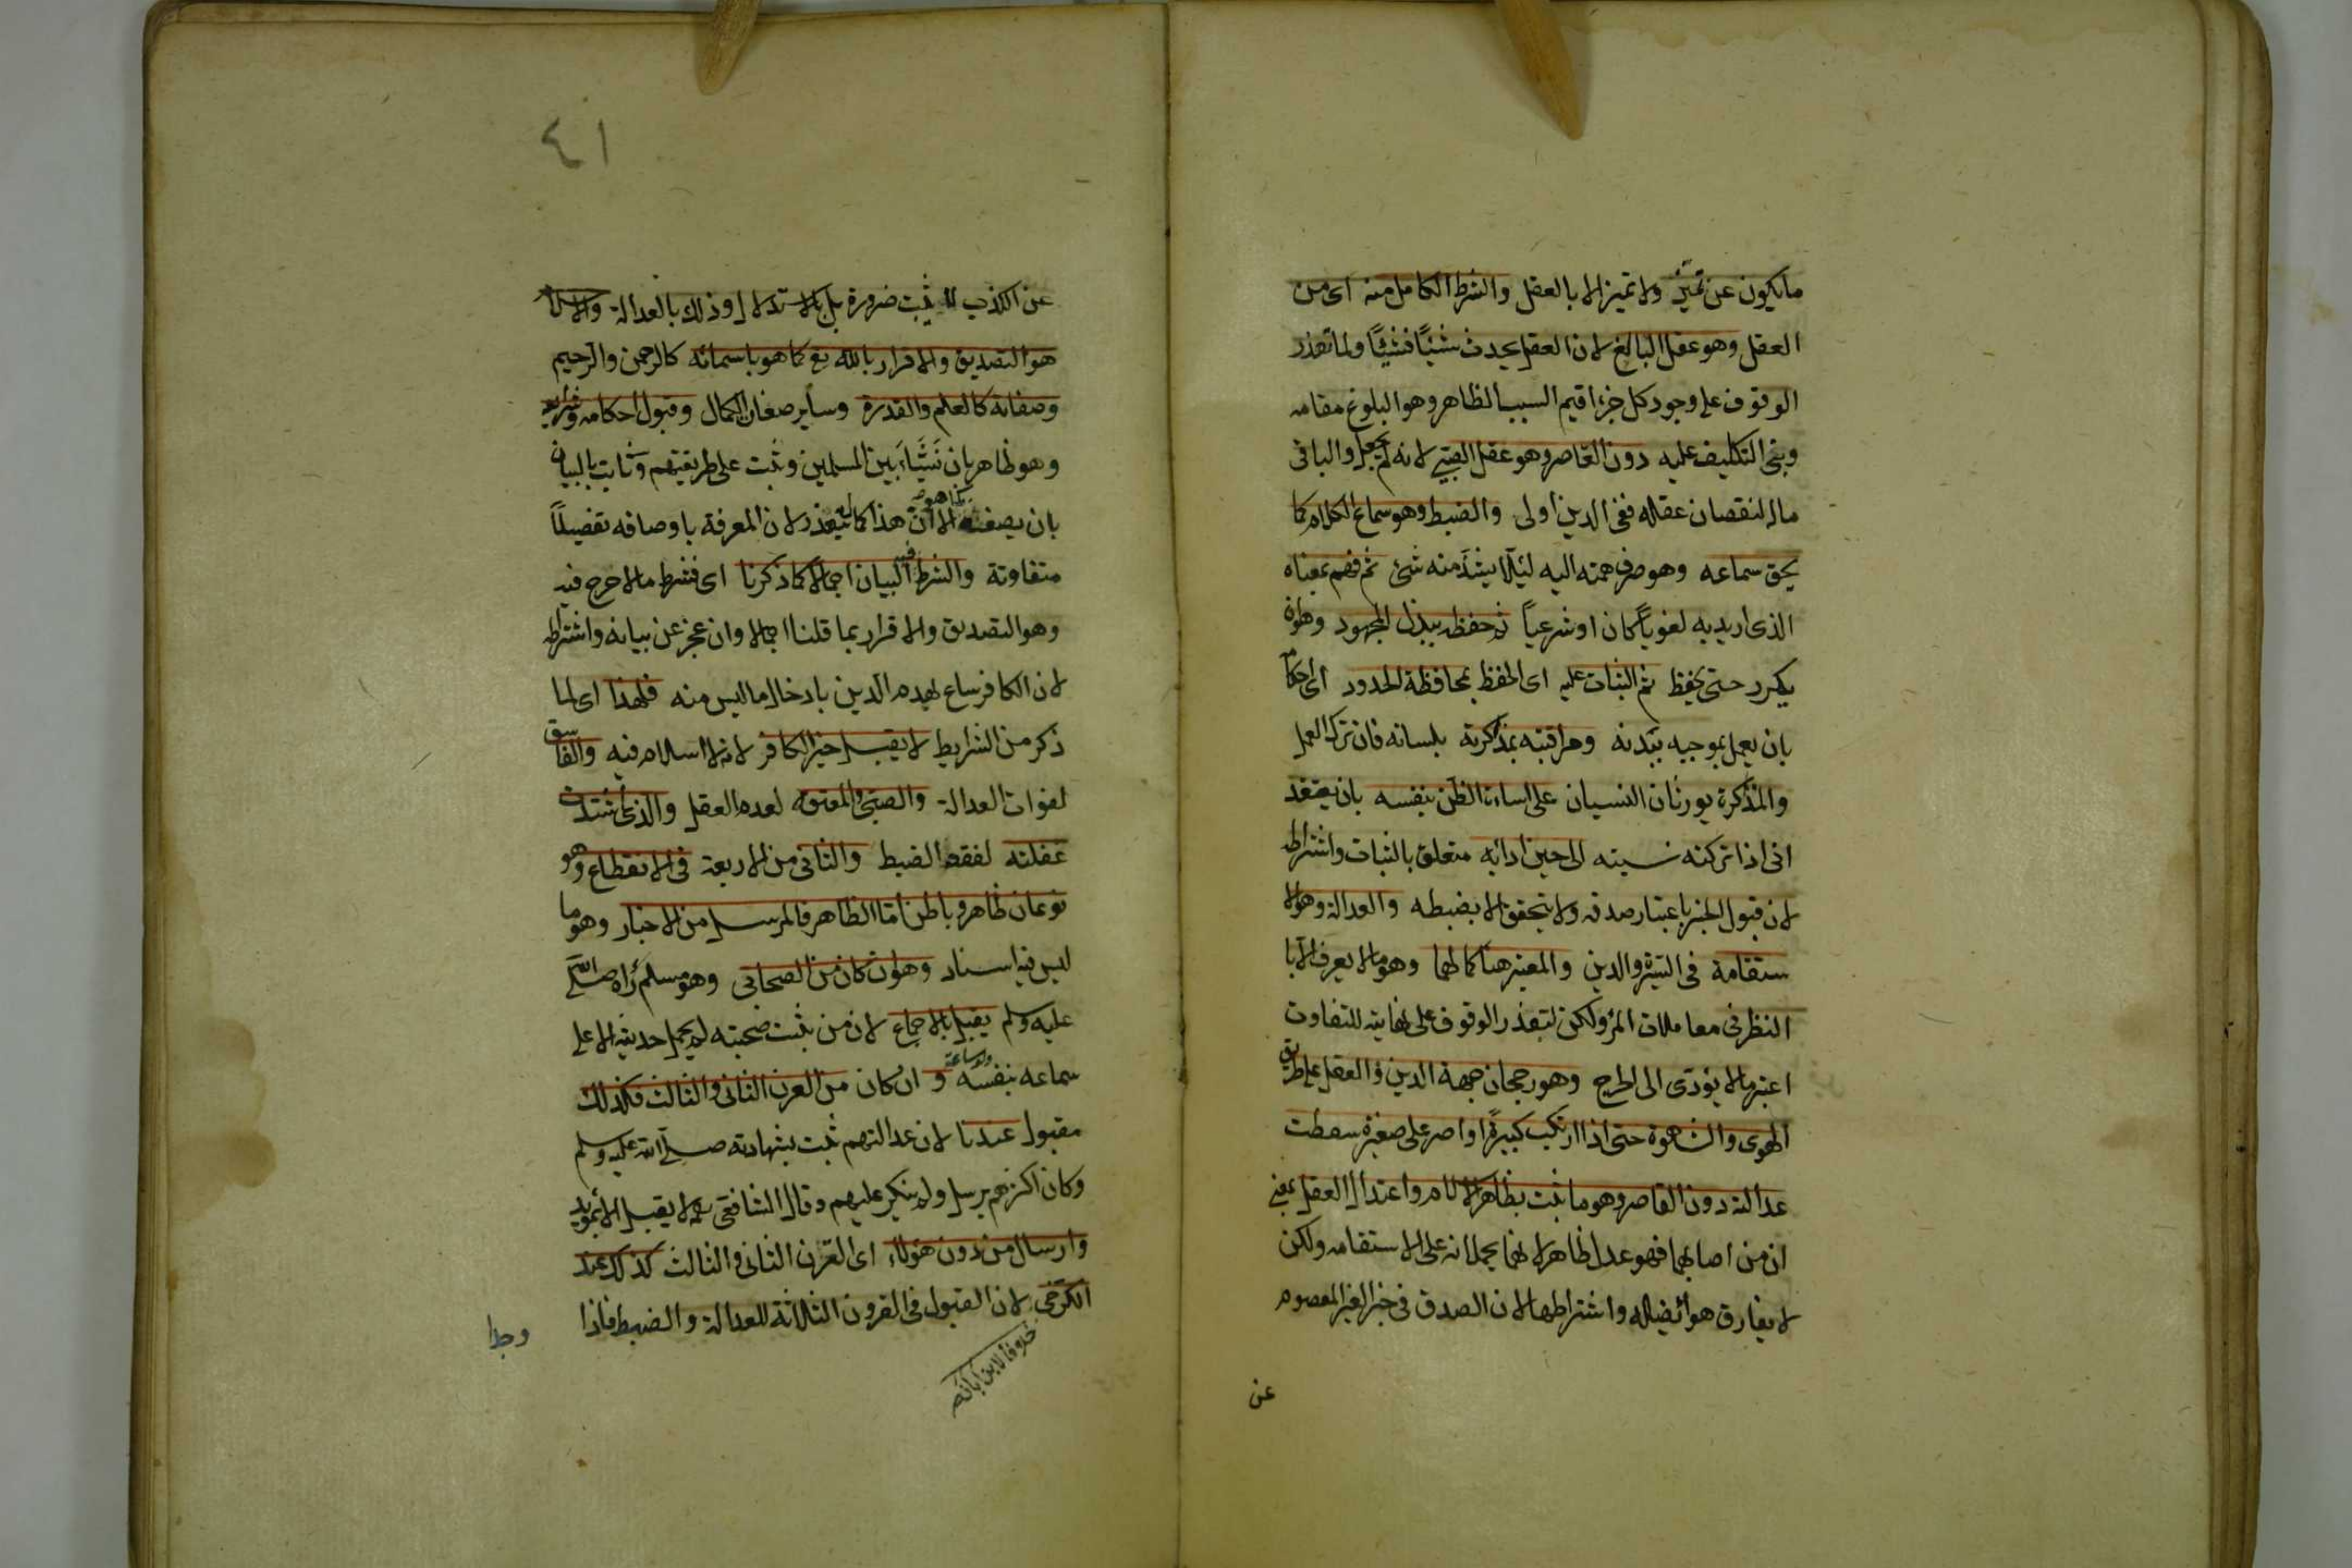 ما يكون عن تميز ولا تميز الا بالعقل والشرط الكامل منه اى من
العقل وهو عقل البالغ لان العقل يحدث شيئًا فشيئًا ولما تعذر
الوقوف على وجود كل جزء اقيم السبب الظاهر وهو البلوغ مقامه
وبنى التكليف عليه دون القاصر وهو عقل الصبى لانه لم يجعل والبا فى
ماله لنقصان عقله ففى الدين اولى والضبط وهو سماع الكلام كما
يحق سماعه وهو صرف همته اليه لئلا يشذ منه شئ ثم فهم بمعناه
الذى اريد به لغوياً كان او شرعياً ثم حفظه ببذل المجهود وهو ان
يكرر حتى يحفظ ثم الثبات عليه اى الحفظ بمحافظة الحدود اى احكام
بان يعمل بموجبه ببدنه ومراقبته بمذاكرته بلسانه فان ترك العمل
والمذاكرة يورثان النسيان على اساءة الظن بنفسه بان يعتقد
انى اذا تركته نسيته الى حين ادائه متعلق بالثبات واشتراطه
لان قبول الخبر باعتبار صدقه ولا يتحقق الا بضبطه والعدالة وهو الا
ستقامة فى السيرة والدين والمعتبر هنا كمالها وهو ما لا يعرف الا با
النظر فى معاملات المرء ولكن لتعذر الوقوف على نهايته للتفاوت
اعتبر ما لا يؤدى الى الحرج وهو رجحان جهة الدين والعقل على طريق
الهوى والشهوة حتى اذا ارتكب كبيرةً او اصر على صغيرة سقطت
عدالته دون القاصر وهو ما ثبت بظاهر الاسلام واعتدال العقل بمعنى
ان من اصابهما فهو عدل ظاهر لانهما يحملانه على الاستقامة ولكن
لا يفارق هوائ يضله واشتراطها لان الصدق فى خبر الغير المعصوم
عن
٤١
عن الكذب لا يثبت ضرورة بل بالاستدلال وذلك بالعدالة والاسلام
هو التصديق والاقرار بالله تع كما هو باسمائه كالرحمن والرحيم
وصفاته كالعلم والقدرة وساير صفات الكمال وقبول احكامه وشرايعه
وهو ظاهر بان نشأ بين المسلمين وثبت على طريقتهم وثابت بالبيان
بان يصف كما هو الا ان هذا كماله يتعذر لان المعرفة باوصافه تفصيلاً
متفاوتة والشرط فيه البيان اجمالا كما ذكرنا اى فشرط ما لا حرج فيه
وهو التصديق والاقرار بما قلنا اجمالا وان عجز عن بيانه واشتراطه
لان الكافر ساع لهدم الدين بادخال ما ليس منه فلهذا اى لما
ذكر من الشرايط لا يقبل خبر الكافر لانه لا اسلام فيه والفاسق
لفوات العدالة والصبى والمعتوه لعدم العقل والذى اشتدت
غفلته لفقد الضبط والثانى من الاربعة فى الانقطاع وهو
نوعان ظاهر وباطن اما الظاهر فالمرسل من الاخبار وهو ما
ليس فيه اسناد وهو ان كان من الصحابى وهو مسلم رآه صلى الله
عليه وسلم يقبل بالاجماع لان من ثبت صحبته لم يحمل حديثه الا على
سماعه بنفسه وان كان من القرن الثانى والثالث فكذلك
مقبول عندنا لان عدالتهم ثبت بشهادته صلى الله عليه وسلم
وكان اكثرهم يرسل ولم ينكر عليهم وقال الشافعى لا يقبل الا بمؤيد
وارسال من دون هؤلاء اى القرن الثانى والثالث كذلك عند
الكرخى لان القبول فى القرون الثلاثة للعدالة والضبط فاذا
خلافا لابن ابان
وجدا